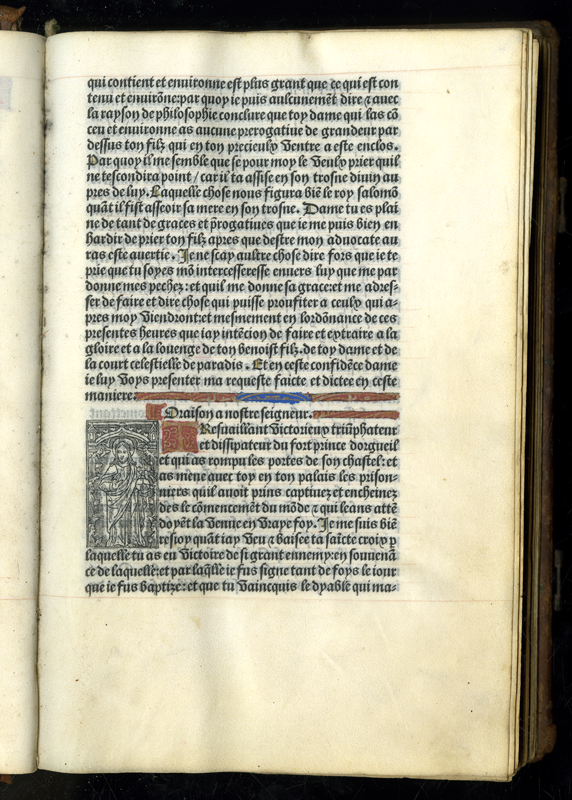 qui contient et environne est plus grant que ce qui est con
tenu et enuirōne: par quoy ie puis aulcunemēt dire ⁊ auec
la rayson de philosophie conclure que toy dame qui las cō
ceu et enuironne as aucune prerogatiue de grandeur par
dessus ton filz qui en ton precieulx ventre a este enclos.
Par quoy il me semble que se pour moy le veulx prier quil
ne tescondira point / car il ta assise en son trosne diuin au
pres de luy. Laquelle chose nous figura biē le roy salomō
quāt il fist asseoir sa mere en son trosne. Dame tu es plai
ne de tant de graces et p̄rogatiues que ie me puis bien en
hardir de prier ton filz apres que destre mon aduocate au
ras este auertie. Je ne scay aultre chose dire fors que ie te
prie que tu soyes mō intercesseresse enuers luy que me par
donne mes pechez: et quil me donne sa grace: et me adres-
ser de faire et dire chose qui puisse proufiter a ceulx qui a-
pres moy viendront: et mesmement en lordōnance de ces
presentes heures que iay intēcion de faire et extraire a la
gloire et a la louenge de ton benoist filz. de toy dame et de
la court celestielle de paradis. Et en ceste confidēce dame
ie luy voys presenter ma requeste faicte et dictee en ceste
maniere.
Oraison a nostre seigneur.
Resuaillant victorieux triūphateur
et dissipateur du fort prince dorgueil
et qui as rompu les portes de son chastel: et
as mene auec toy en ton palais les prison-
niers quil auoit prins captiuez et encheinez
des le cōmencemēt du mōde ⁊ qui leans attē
doyēt la venue en vraye foy. Je me suis biē
resioy quāt iay veu ⁊ baisee ta saīcte croix p
laquelle tu as eu victoire de si grant ennemy: en souueniā
ce de laquelle: et par laq̄lle ie fus signe tant de foys le iour
que ie fus baptize: et que tu vaincquis le dyable qui ma-